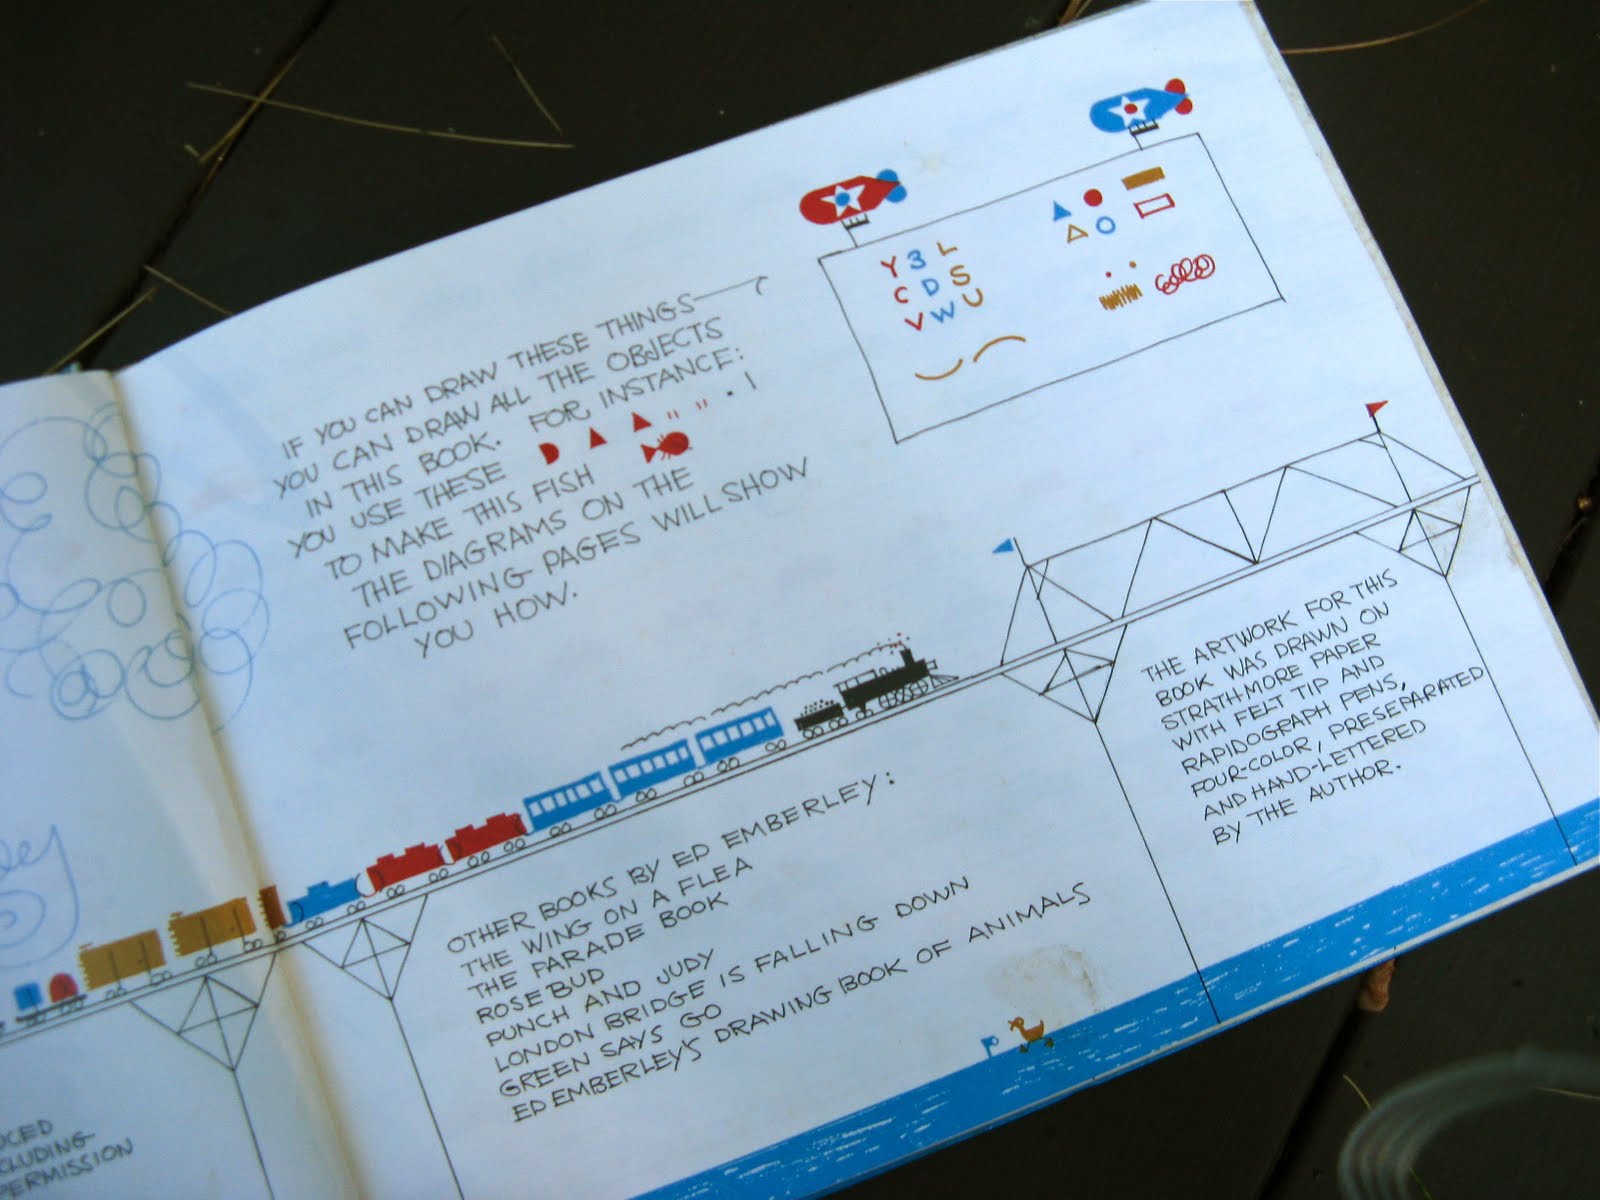 IF YOU CAN DRAW THESE THINGS
YOU CAN DRAW ALL THE OBJECTS
IN THIS BOOK. FOR INSTANCE:
YOU USE THESE
TO MAKE THIS FISH
THE DIAGRAMS ON THE
FOLLOWING PAGES WILL SHOW
YOU HOW.
Y 3 L
C D S
V W U
THE ARTWORK FOR THIS
BOOK WAS DRAWN ON
STRATHMORE PAPER
WITH FELT TIP AND
RAPIDOGRAPH PENS,
FOUR-COLOR, PRESEPARATED
AND HAND-LETTERED
BY THE AUTHOR.
OTHER BOOKS BY ED EMBERLEY:
THE WING ON A FLEA
THE PARADE BOOK
ROSEBUD
PUNCH AND JUDY
LONDON BRIDGE IS FALLING DOWN
GREEN SAYS GO
ED EMBERLEY'S DRAWING BOOK OF ANIMALS
UCED
CLUDING
PERMISSION